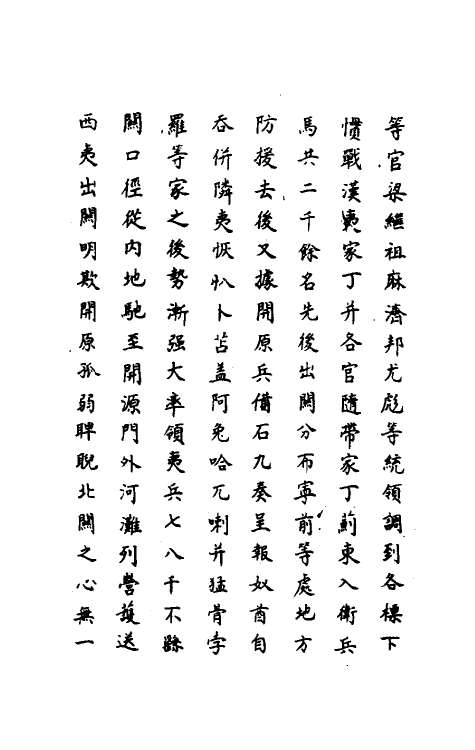 等官梁繼祖麻濟邦尤彪等統領調到各標下
慣戰漢夷家丁并各官隨帶家丁薊東入衛兵
馬共二千餘名先後出關分布寧前等處地方
防援去後又據開原兵備石九奏呈報奴酋自
吞併隣夷恢叭卜苫盖阿兔哈兀喇并猛骨孛
羅等家之後勢漸强大率領夷兵七八千不繇
關口徑從内地馳至開源門外河灘列營護送
西夷出關明欺開原孤弱睥睨北關之心無一